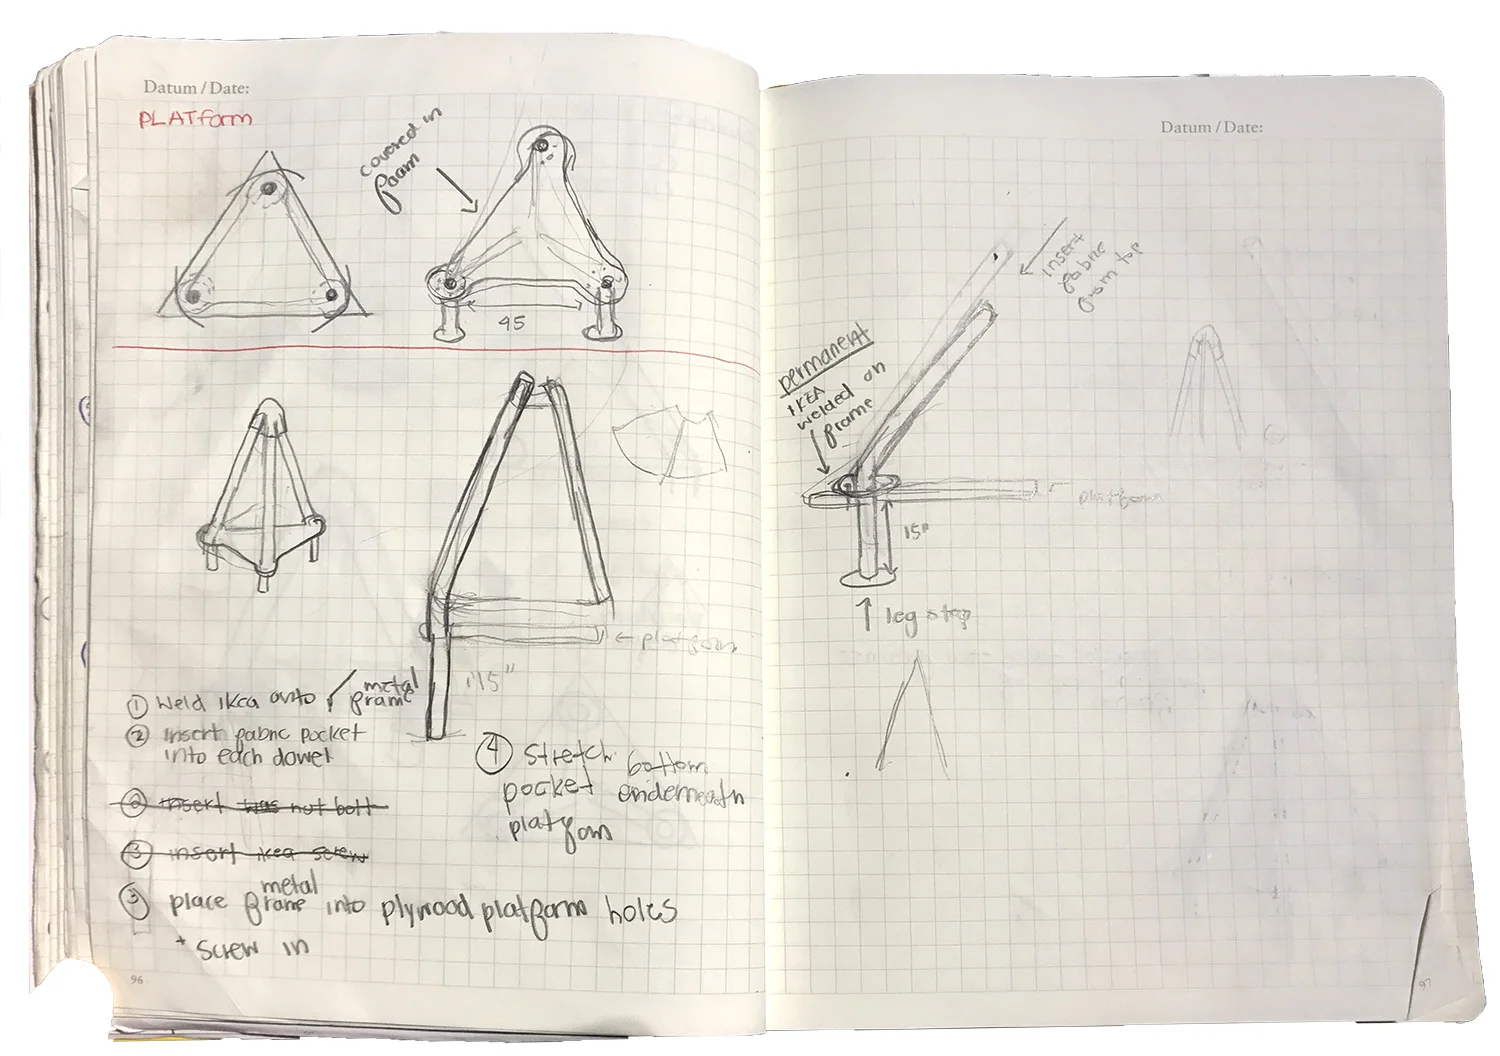 Datum / Date:
PLATform
covered in
foam
45
platform
15"
① Weld ikea onto metal
frame
② insert fabric pocket
into each dowel
② insert was nut bolt
③ insert ikea screw
③ place metal
frame into plywood platform holes
+ screw in
④ stretch bottom
pocket underneath
platform
96
Datum / Date:
insert
fabric
from top
permanent
IKEA
welded on
frame
platform
15"
leg stop
97